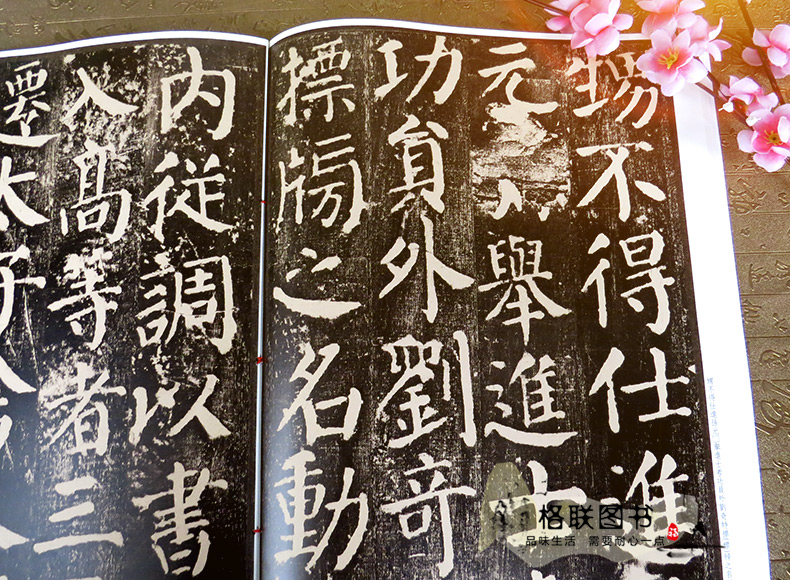 甥不得仕進
元舉進士
功貟外劉奇
摽牓之名動
内從調以書
入髙等者三
遷太子舍
格联图书
品味生活 需要耐心一点